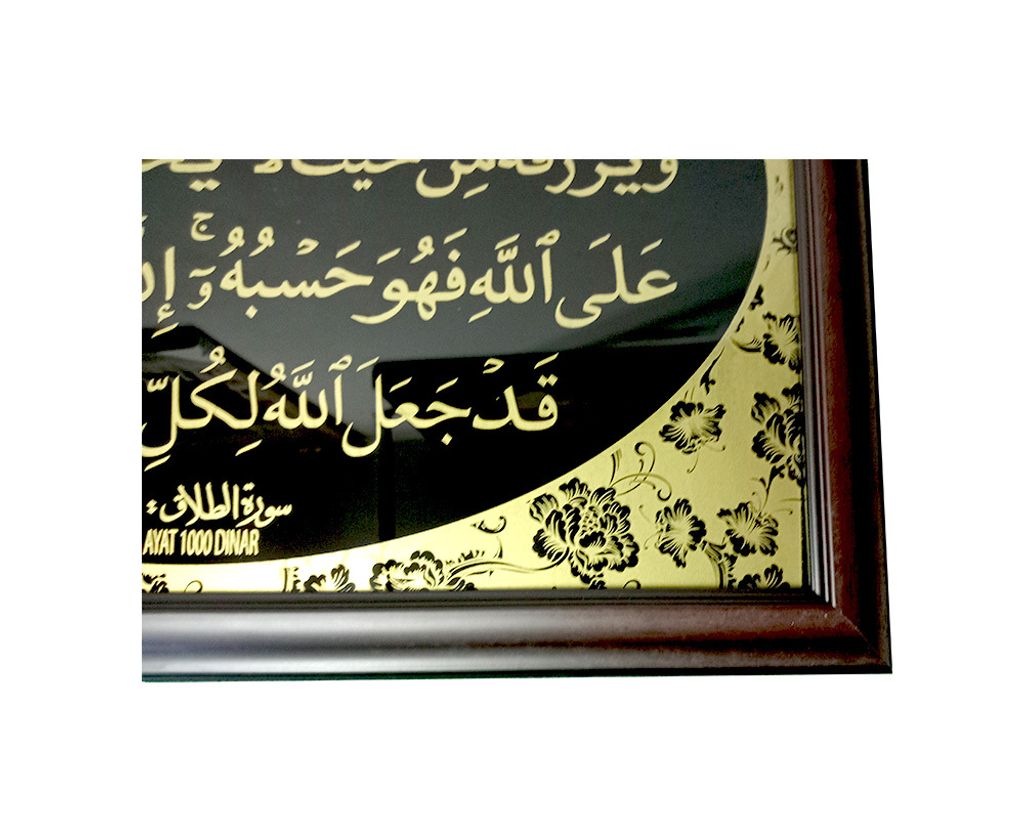 وَيَرْزُقْهُ مِنْ حَيْثُ لَا
عَلَى ٱللَّهِ فَهُوَ حَسْبُهُۥٓ ۚ
قَدْ جَعَلَ ٱللَّهُ لِكُلِّ
سورة الطلاق :
AYAT 1000 DINAR